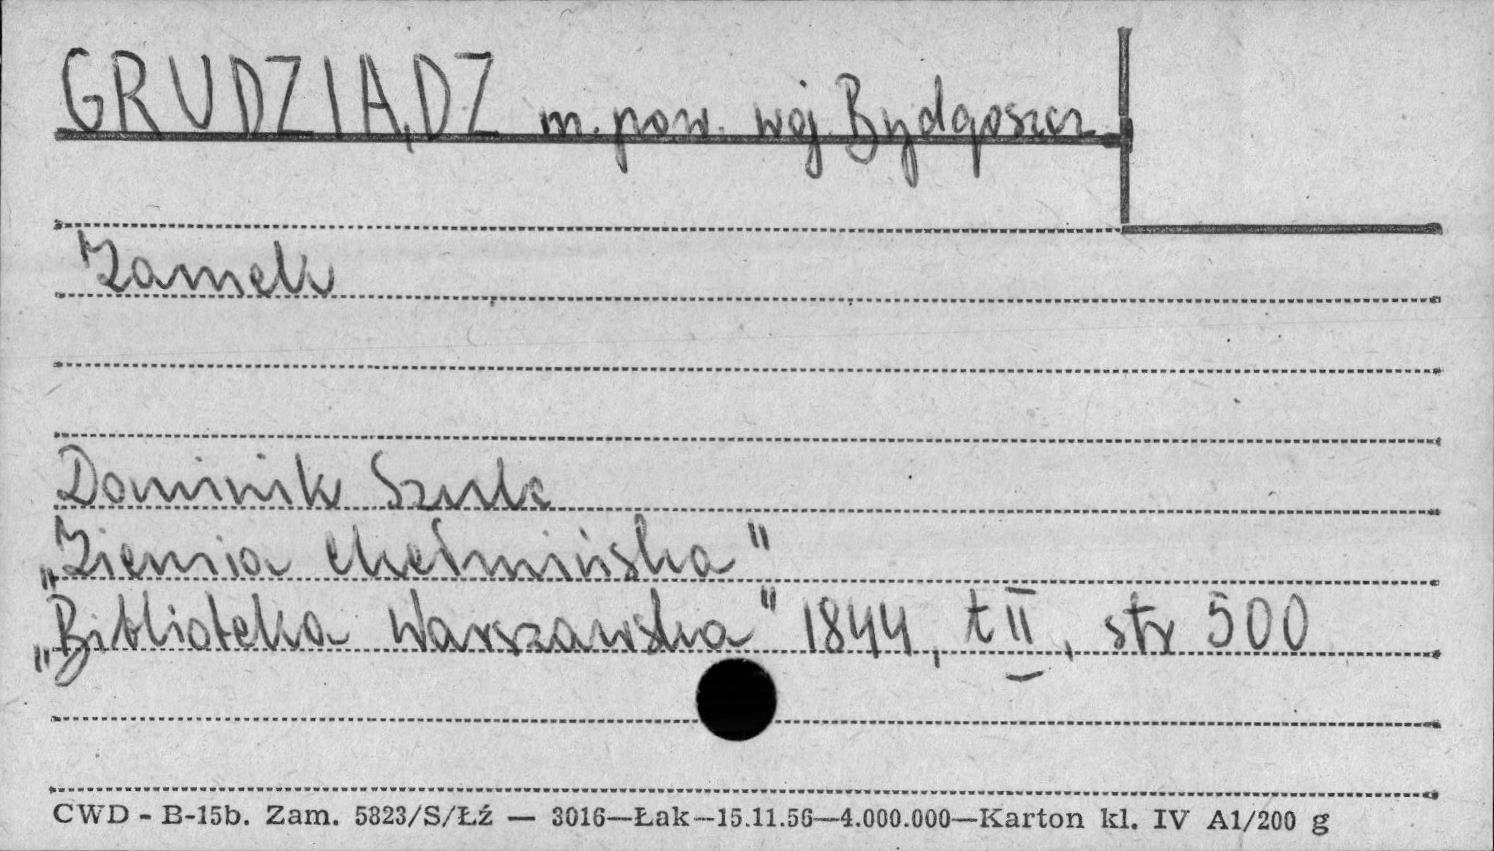 GRUDZIĄDZ m. pow. woj. Bydgoszcz
Zamek
Dominik Szulc
„Ziemia Chełmińska"
„Biblioteka Warszawska" 1844, t II, str 500
CWD - B-15b. Zam. 5823/S/Łź — 3016—Łak—15.11.56—4.000.000—Karton kl. IV A1/200 g